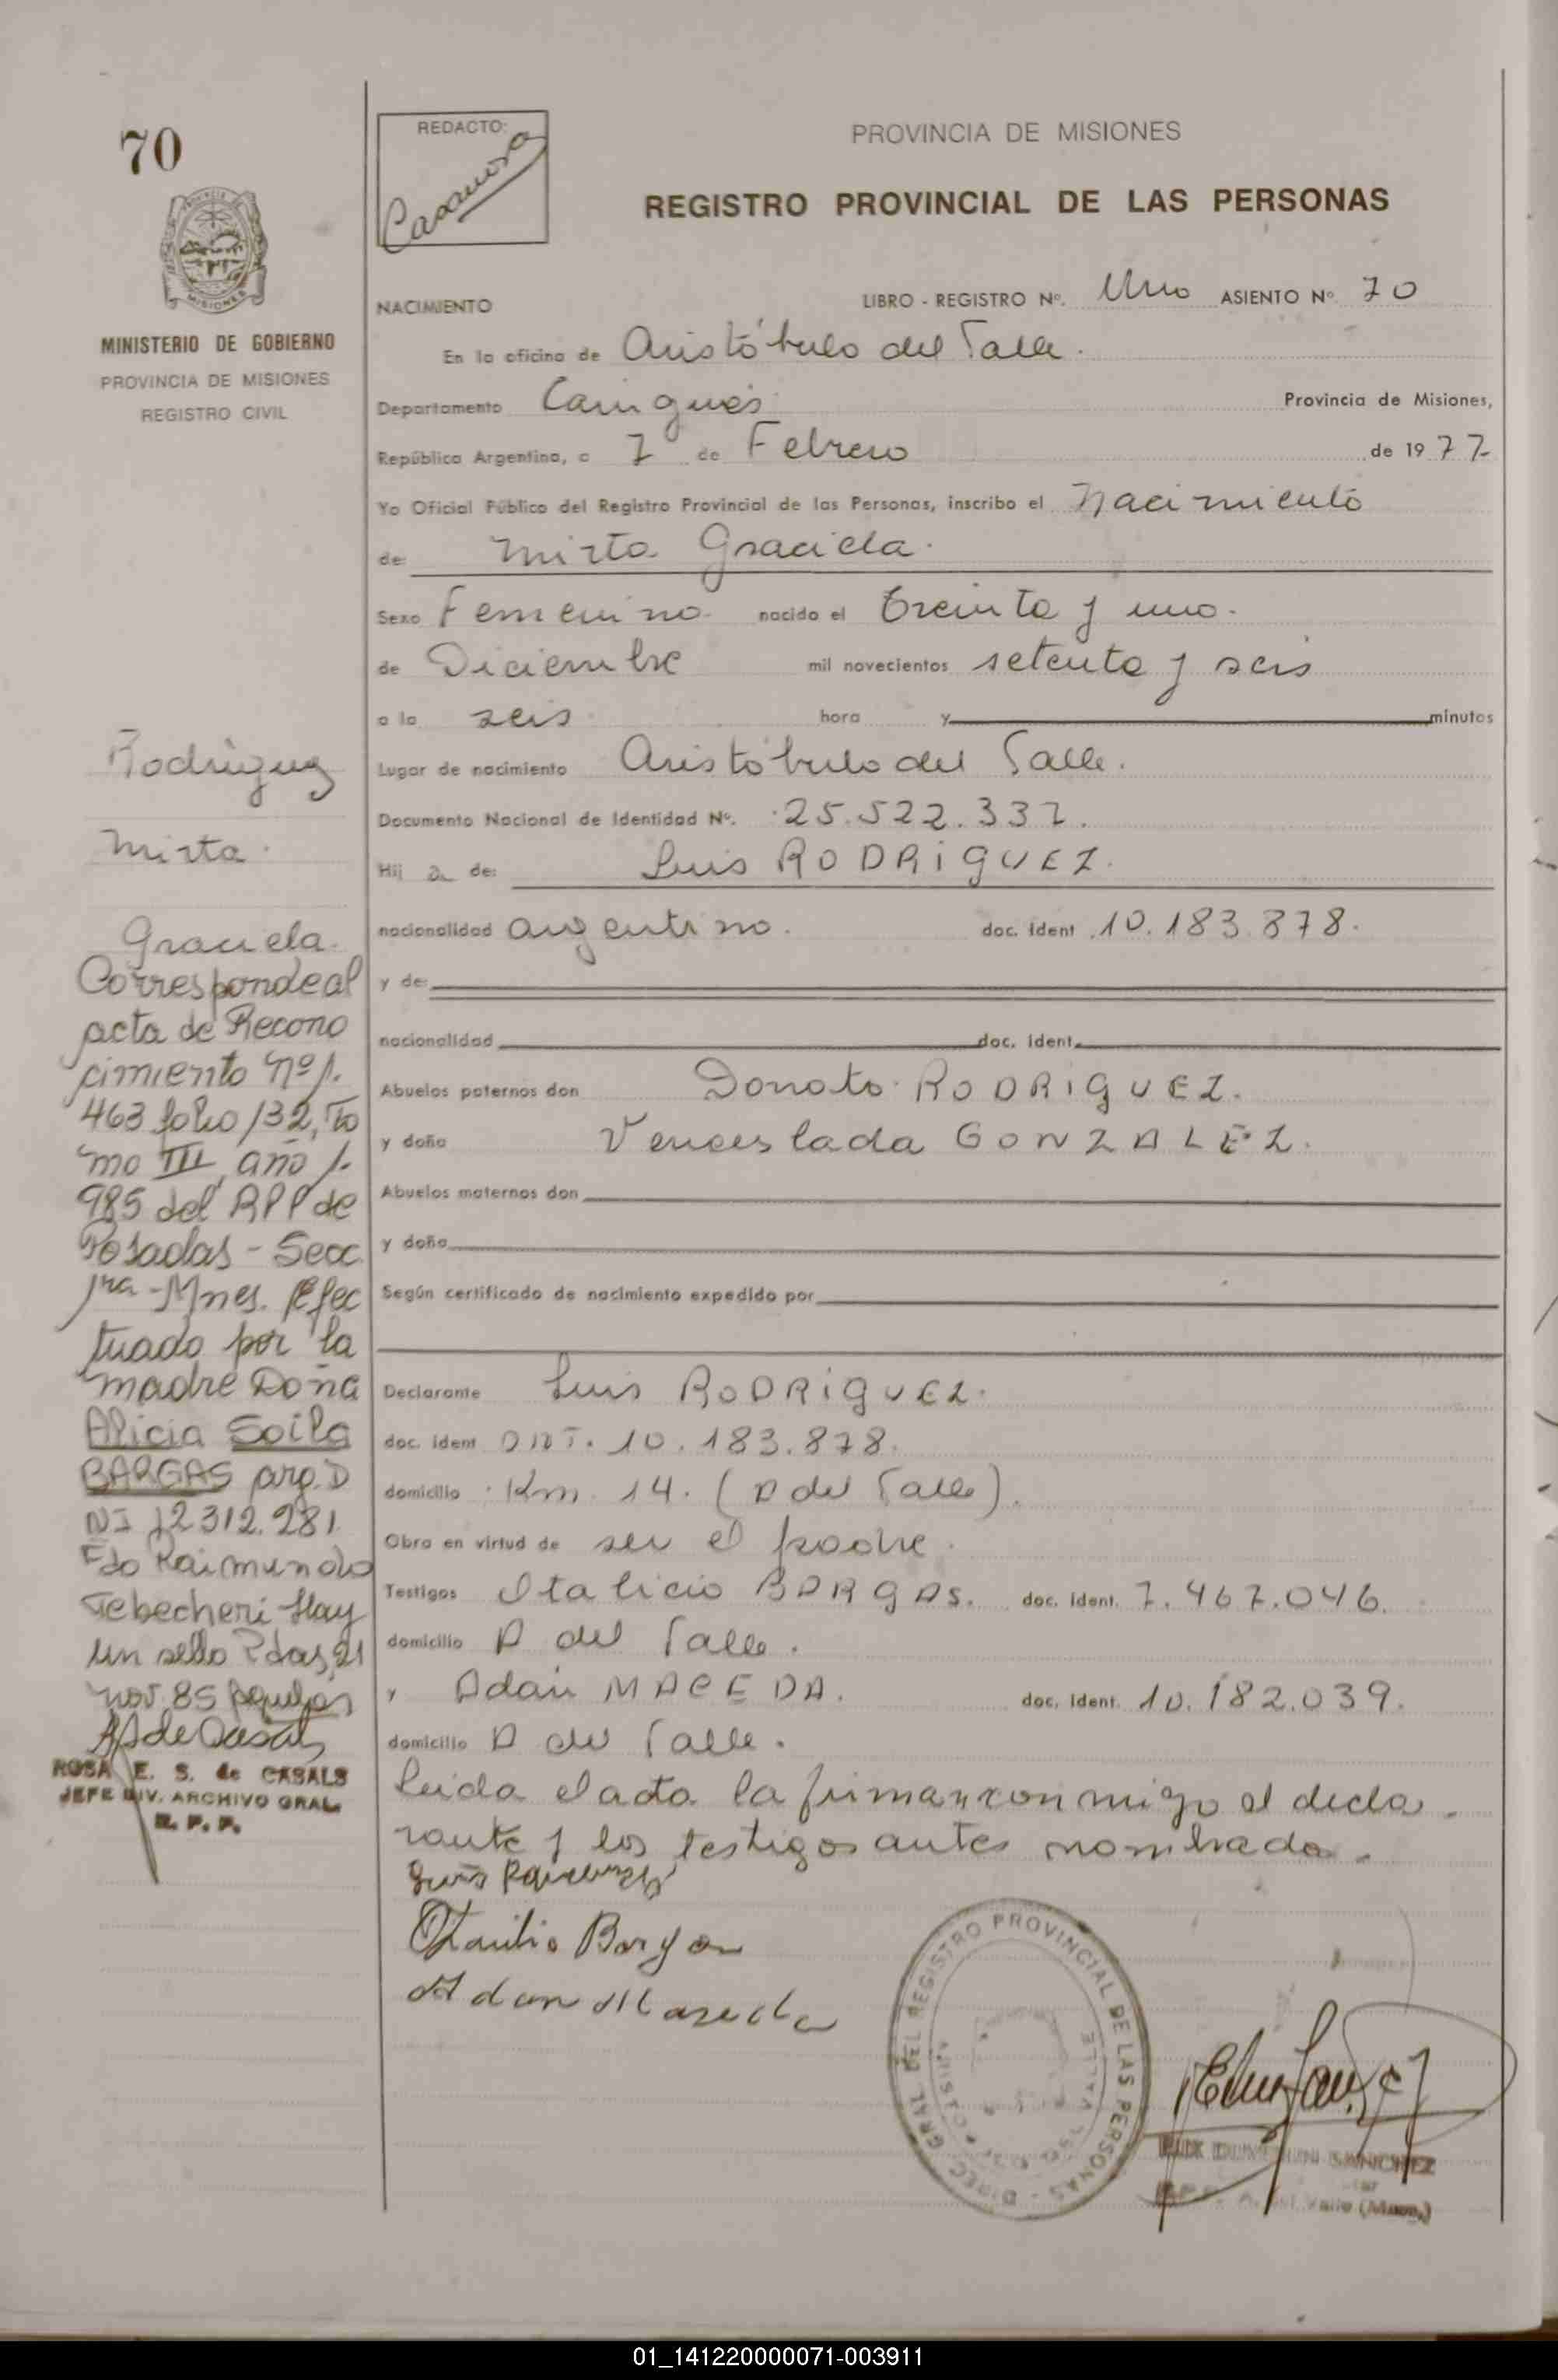 70
REDACTO:
Casanova
PROVINCIA DE MISIONES
REGISTRO PROVINCIAL DE LAS PERSONAS
MISIONES
MINISTERIO DE GOBIERNO
PROVINCIA DE MISIONES
REGISTRO CIVIL
NACIMIENTO
LIBRO - REGISTRO Nº. Uno ASIENTO Nº 70
En la oficina de Aristóbulo del Valle.
Departamento Cainguás Provincia de Misiones,
República Argentina, a 7 de Febrero de 1977
Yo Oficial Público del Registro Provincial de las Personas, inscribo el Nacimiento
de: Mirta Graciela.
Sexo Femenino. nacido el treinta y uno.
de Diciembre mil novecientos setenta y seis
a la seis hora y minutos
Lugar de nacimiento Aristóbulo del Valle.
Documento Nacional de Identidad Nº. 25.522.337.
Hij a de: Luis RODRIGUEZ.
nacionalidad argentino. doc. ident 10.183.878.
y de:
nacionalidad doc. ident.
Abuelos paternos don Donato RODRIGUEZ.
y doña Venceslada GONZALEZ.
Abuelos maternos don
y doña
Según certificado de nacimiento expedido por
Declarante Luis RODRIGUEZ.
doc. ident DNI. 10.183.878.
domicilio Km. 14. (A del Valle).
Obra en virtud de ser el padre.
Testigos Italicio BARGAS. doc. ident. 7.467.046.
domicilio A del Valle.
y Adán MACEDA. doc. ident. 10.182.039.
domicilio A del Valle.
Leida el acta la firman con migo el decla-
rante y los testigos antes nombrado.
Adan Maseda
Rodríguez
Mirta
Graciela.
Corresponde al
acta de Recono
cimiento Nº 1.
463 folio 132, To
mo III, año 1.
985 del RPP de
Posadas - Secc
1ra - Mnes. Efec
tuado por la
madre Doña
Alicia Soila
BARGAS arg. D
NI 12312.281
Fdo Raimundo
Tebecheri Hay
un sello Pdas, 21
nov. 85
ROSA E. S. de CASALS
JEFE DIV. ARCHIVO GRAL.
R. P. P.
DIREC. GRAL. DEL REGISTRO PROVINCIAL DE LAS PERSONAS
SANCHEZ
A. del Valle (Mnes.)
01_141220000071-003911